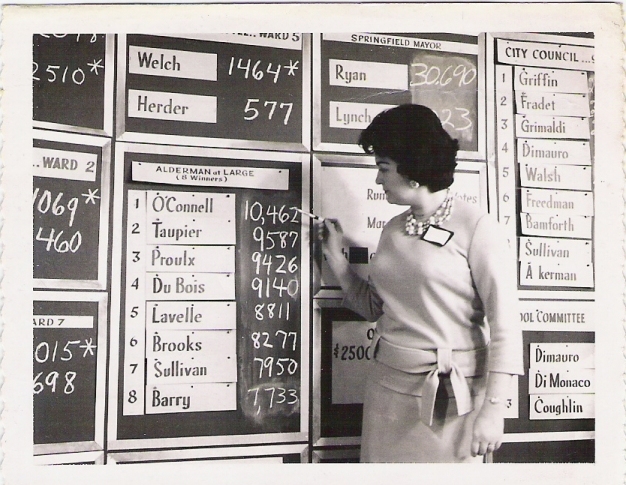 2510*
WARD 5
Welch 1464*
Herder 577
SPRINGFIELD MAYOR
Ryan 30,690
Lynch 23
CITY COUNCIL...
1 Griffin
2 Fradet
3 Grimaldi
4 Dimauro
5 Walsh
6 Freedman
7 Bamforth
Sullivan
A kerman
..WARD 2
1069*
460
ALDERMAN at LARGE
(8 Winners)
1 O'Connell 10,462
2 Taupier 9587
3 Proulx 9426
4 Du Bois 9140
5 Lavelle 8811
6 Brooks 8277
7 Sullivan 7950
8 Barry 7,733
ARD 7
015*
698
$2500
OOL COMMITTEE
Dimauro
Di Monaco
3 Coughlin